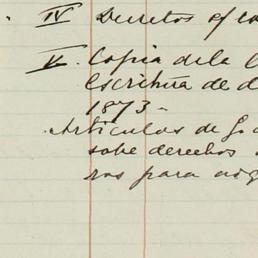 IV Decretos of
V. Copia de la
escritura de d
1873 -
Articulos de
sobe derechos
ros para